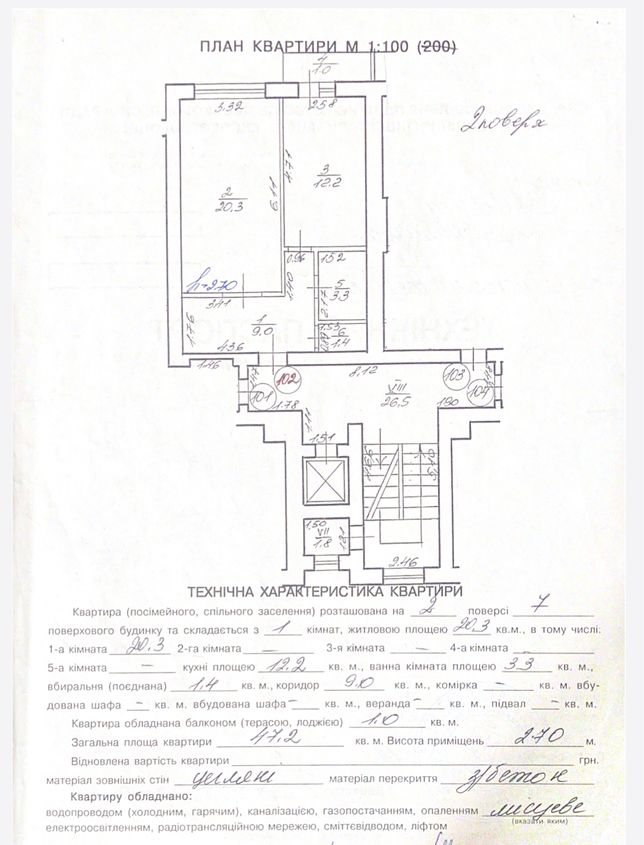 ПЛАН КВАРТИРИ М 1:100 (200)
4
1.0
2 поверх
3.32
2.58
4.71
6.11
2
20.3
3
12.2
h=2.70
0.96
1.52
1.40
5
3.3
2.17
3.41
1
9.0
1.53
6
1.4
1.76
4.36
1.16
8.12
101
102
103
104
1.78
VIII
26.5
1.90
1.51
5.10
1.50
VII
1.8
2.46
ТЕХНІЧНА ХАРАКТЕРИСТИКА КВАРТИРИ
Квартира (посімейного, спільного заселення) розташована на 2 поверсі 7
поверхового будинку та складається з 1 кімнат, житловою площею 20.3 кв.м., в тому числі:
1-а кімната 20.3 2-га кімната — 3-я кімната — 4-а кімната
5-а кімната — кухні площею 12.2 кв. м., ванна кімната площею 3.3 кв. м.,
вбиральня (поєднана) 1.4 кв. м., коридор 9.0 кв. м., комірка — кв. м. вбу-
дована шафа — кв. м. вбудована шафа — кв. м., веранда — кв. м., підвал — кв. м.
Квартира обладнана балконом (терасою, лоджією) 1.0 кв. м.
Загальна площа квартири 47.2 кв. м. Висота приміщень 2.70 м.
Відновлена вартість квартири грн.
матеріал зовнішніх стін цегляні матеріал перекриття з/бетон
Квартиру обладнано:
водопроводом (холодним, гарячим), каналізацією, газопостачанням, опаленням місцеве
(вказати яким)
електроосвітленням, радіотрансляційною мережею, сміттєвідводом, ліфтом